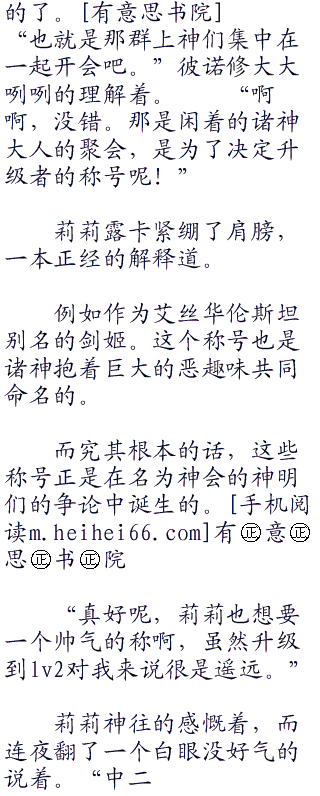 的了。[有意思书院]
“也就是那群上神们集中在
一起开会吧。”彼诺修大大
咧咧的理解着。 “啊
啊，没错。那是闲着的诸神
大人的聚会，是为了决定升
级者的称号呢！”
莉莉露卡紧绷了肩膀，
一本正经的解释道。
例如作为艾丝华伦斯坦
别名的剑姬。这个称号也是
诸神抱着巨大的恶趣味共同
命名的。
而究其根本的话，这些
称号正是在名为神会的神明
们的争论中诞生的。[手机阅
读m.heihei66.com]有㊣意㊣
思㊣书㊣院
“真好呢，莉莉也想要
一个帅气的称啊，虽然升级
到lv2对我来说很是遥远。”
莉莉神往的感慨着，而
连夜翻了一个白眼没好气的
说着。“中二